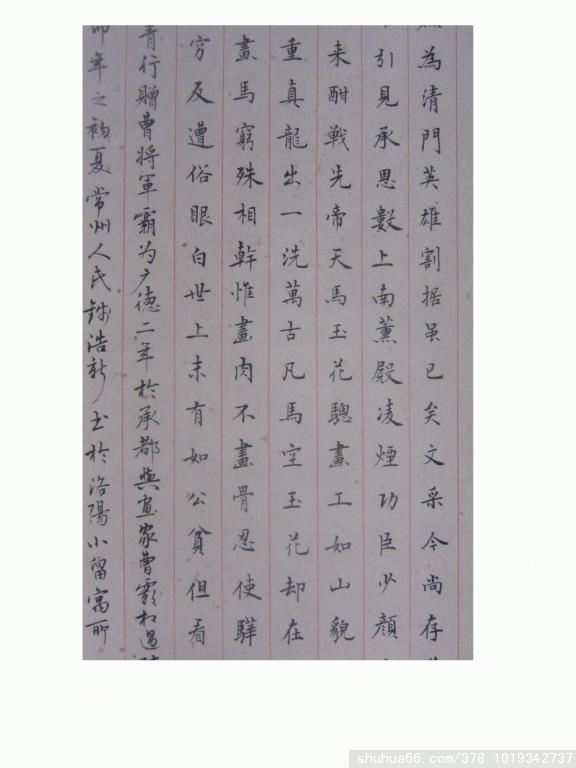 為清門英雄割据虽已矣文采今尚存
引見承恩數上南薰殿凌煙功臣少顔
来酣戦先帝天馬玉花驄畫工如山貌
重真龍出一洗萬古凡馬空玉花却在
畫馬窮殊相幹惟畫肉不畫骨忍使驊
穷反遭俗眼白世上未有如公貧但看
青行贈曹将軍霸为广德二年於承都與画家曹霸相遇
卯年之初夏常州人氏錢浩新书於洛陽小留寓所
shuhua66.com/378 1019342737